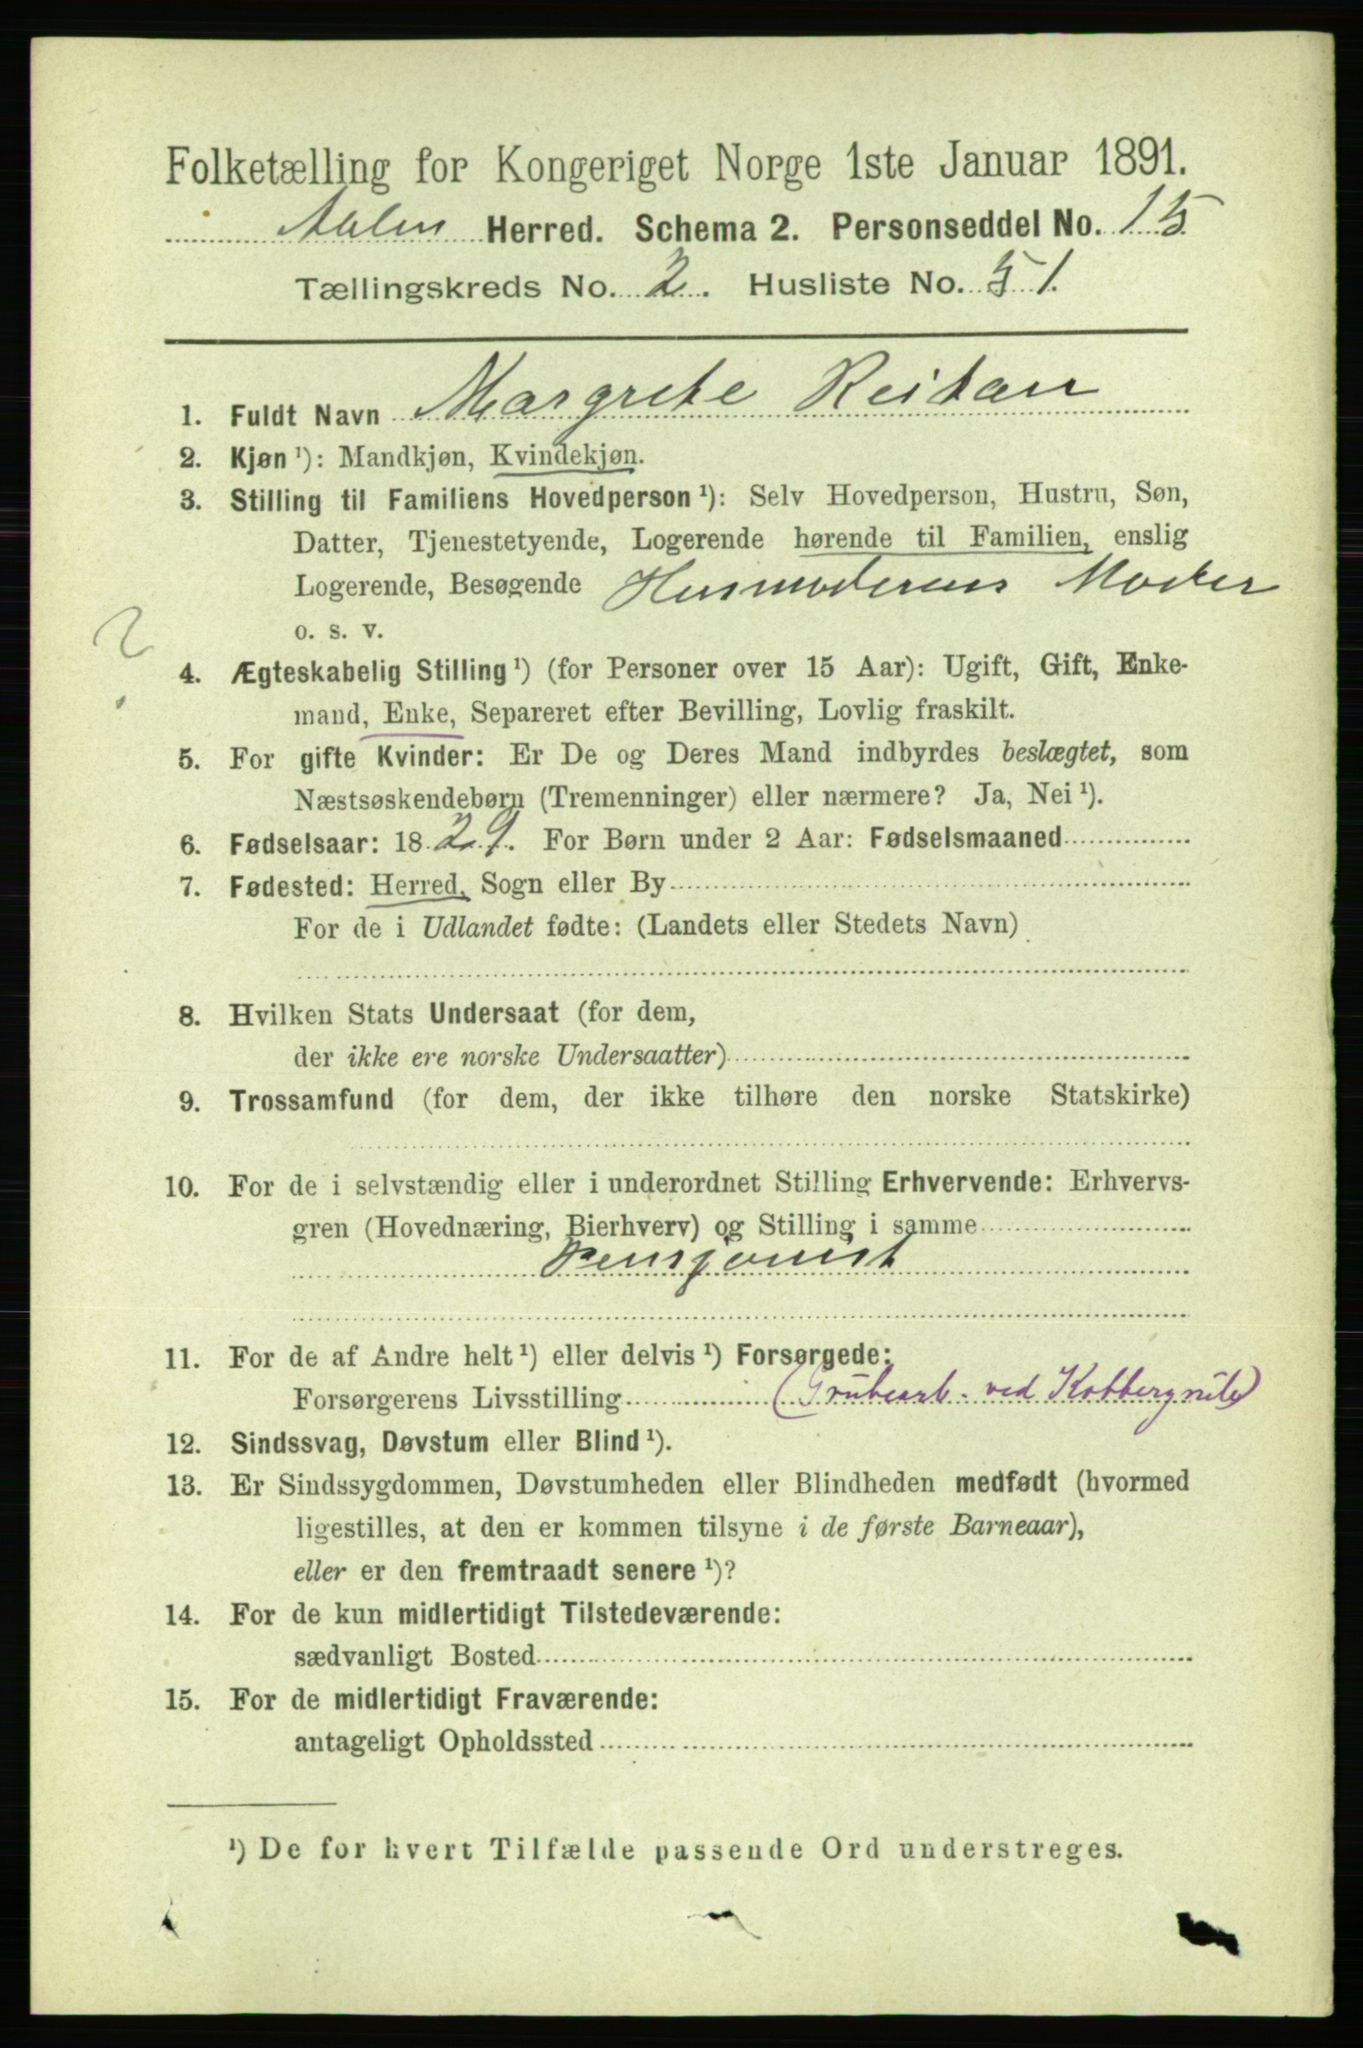 Folketælling for Kongeriget Norge 1ste Januar 1891.
Aalen Herred. Schema 2. Personseddel No. 15
Tællingskreds No. 2. Husliste No. 51.
1. Fuldt Navn Margrete Reitan
2. Kjøn ¹): Mandkjøn, Kvindekjøn.
3. Stilling til Familiens Hovedperson ¹): Selv Hovedperson, Hustru, Søn,
Datter, Tjenestetyende, Logerende hørende til Familien, enslig
Logerende, Besøgende Husmoderens Moder
o. s. v.
2
4. Ægteskabelig Stilling ¹) (for Personer over 15 Aar): Ugift, Gift, Enke-
mand, Enke, Separeret efter Bevilling, Lovlig fraskilt.
5. For gifte Kvinder: Er De og Deres Mand indbyrdes beslægtet, som
Næstsøskendebørn (Tremenninger) eller nærmere? Ja, Nei ¹).
6. Fødselsaar: 1829. For Børn under 2 Aar: Fødselsmaaned
7. Fødested: Herred, Sogn eller By
For de i Udlandet fødte: (Landets eller Stedets Navn)
8. Hvilken Stats Undersaat (for dem,
der ikke ere norske Undersaatter)
9. Trossamfund (for dem, der ikke tilhøre den norske Statskirke)
10. For de i selvstændig eller i underordnet Stilling Erhvervende: Erhvervs-
gren (Hovednæring, Bierhverv) og Stilling i samme
Pensjonist
11. For de af Andre helt ¹) eller delvis ¹) Forsørgede:
Forsørgerens Livsstilling (Grubearb. ved Kobbergrube)
12. Sindssvag, Døvstum eller Blind ¹).
13. Er Sindssygdommen, Døvstumheden eller Blindheden medfødt (hvormed
ligestilles, at den er kommen tilsyne i de første Barneaar),
eller er den fremtraadt senere ¹)?
14. For de kun midlertidigt Tilstedeværende:
sædvanligt Bosted
15. For de midlertidigt Fraværende:
antageligt Opholdssted
¹) De for hvert Tilfælde passende Ord understreges.